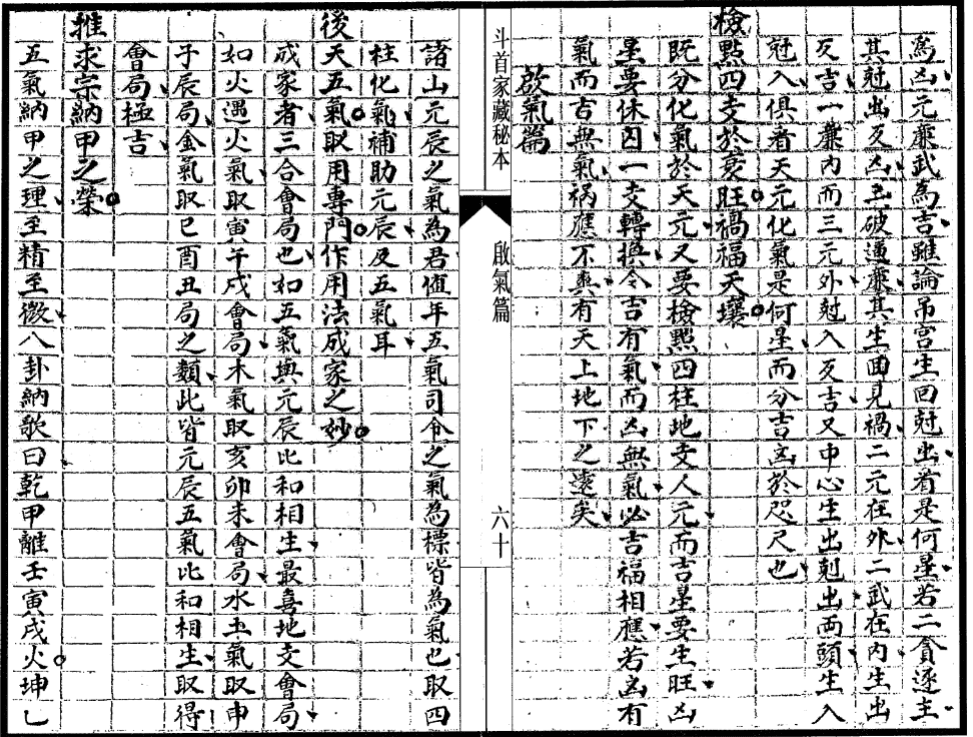 為凶元廉武為吉雖論吊宫生回尅出者是何星若二貪逐主
其尅出反凶五破適廉其生回見禍二元在外二武在内生出
反吉一廉内而三元外尅入反吉又中心生出剋出両頭生入
尅入俱者天元化氣是何星而分吉凶於咫尺也
檢點四支於衰旺禍福天壤
既分化氣於天元又要檢點四柱地支人元而吉星要生旺凶
星要休囚一支轉換令吉有氣而凶無氣必吉福相應若凶有
氣而吉無氣禍應不爽有天上地下之遠矣
啟氣篇
斗首家藏秘本
啟氣篇
六十
諸山元辰之氣為君值年五氣司令之氣為標皆為氣也取四
柱化氣補助元辰及五氣耳
後天五氣取用專門作用法成家之妙
成家者三合會局也如五氣與元辰比和相生最喜地支會局
如火遇火氣取寅午戌會局木氣取亥卯未會局水土氣取申
子辰局金氣取巳酉丑局之類此皆元辰五氣比和相生取得
會局極吉
推求宗納甲之榮
五氣納甲之理至精至微八卦納歌曰乾甲離壬寅戌火坤乙